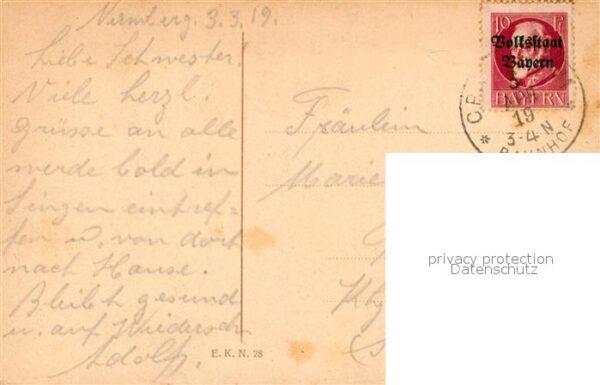 Nürnberg, 3.3.19.
Liebe Schwester!
Viele herzl.
Grüsse an alle
werde bald in
Singen eintref=
fen u. von dort
nach Hause.
Bleibt gesund
u. auf Wiedersch
Adolf.
E. K. N. 28
10 Pf
Volksstaat
Bayern
BAYERN
3
APR
19
3-4 N
BAHNHOF
Fräulein
Marie
privacy protection
Datenschutz